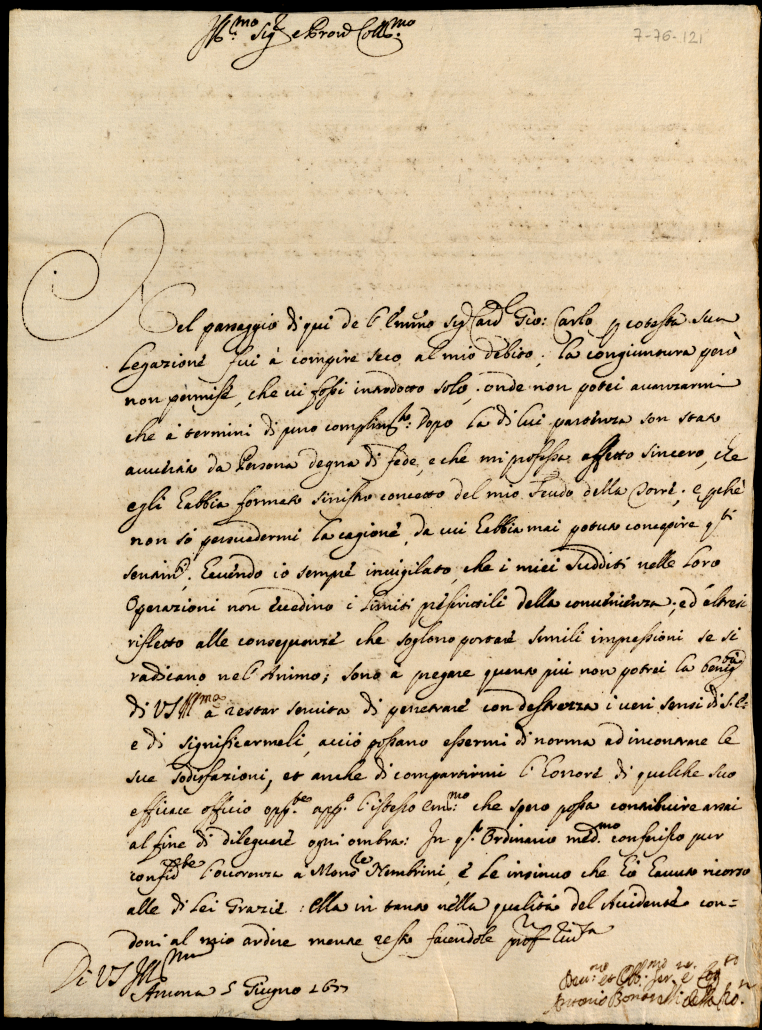 Ill.mo Sig.r e Pron Coll.mo
7-76-121
Nel passaggio di qui de l'Emm̃o Sig Card Gio: Carlo p cotesta sua
Legazione fui à compire seco al mio debito; la congiuntura però
non permise, che vi fossi introdotto solo, onde non potei avanzarmi
che à termini di puro complim.to: Dopo la di lui partenza son stato
avvertito da Persona degna di fede, e che mi professa affetto sincero, che
egli habbia formato sinistro concetto del mio Feudo della Torre; e pche
non so persuadermi la cagione da cui habbia mai potuto concepire q.ti
sentim.ti, havendo io sempre invigilato, che i miei sudditi nelle loro
Operazioni non eccedino i limiti prescrittili della convenienza, ed altresi
rifletto alle consequenze che sogliono portare simili impressioni se si
radicano nel'Animo; sono à pregare quanto più non potrei la benig.tà
di VS Ill.ma à restar servita di penetrare con destrezza i veri sensi di S.E.
e di significarmeli, acciò possano essermi di norma ad incontrare le
sue sodisfazioni, et anche di compartirmi l'honore di qualche suo
efficace officio app.o l'istesso Em.mo che spero possa contribuire assai
al fine di dileguare ogni ombra: In q.to Ordinario med.mo conferisco pur
confid.te l'occorenza a Mons.re Nembrini, e le insinuo che hò havuto ricorso
alle di Lei Grazie: ella in tanto nella qualità del Accidente con=
doni al mio ardire mentre resto facendole prof.
Di VS Ill.ma
Ancona 5 Giugno 16
Dev.mo et Obl.mo ser.
Antonio Bonarelli della